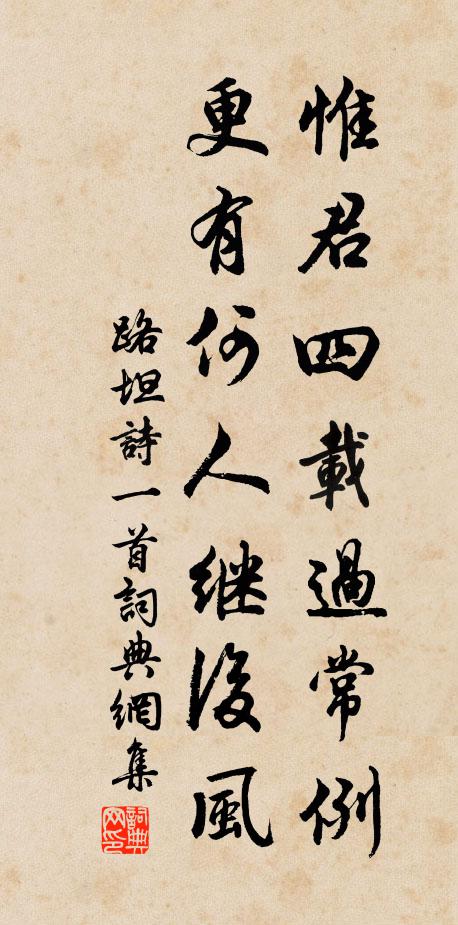 惟君四載過常例
更有何人继後風
路坦詩一首詞典網集
詞典网印